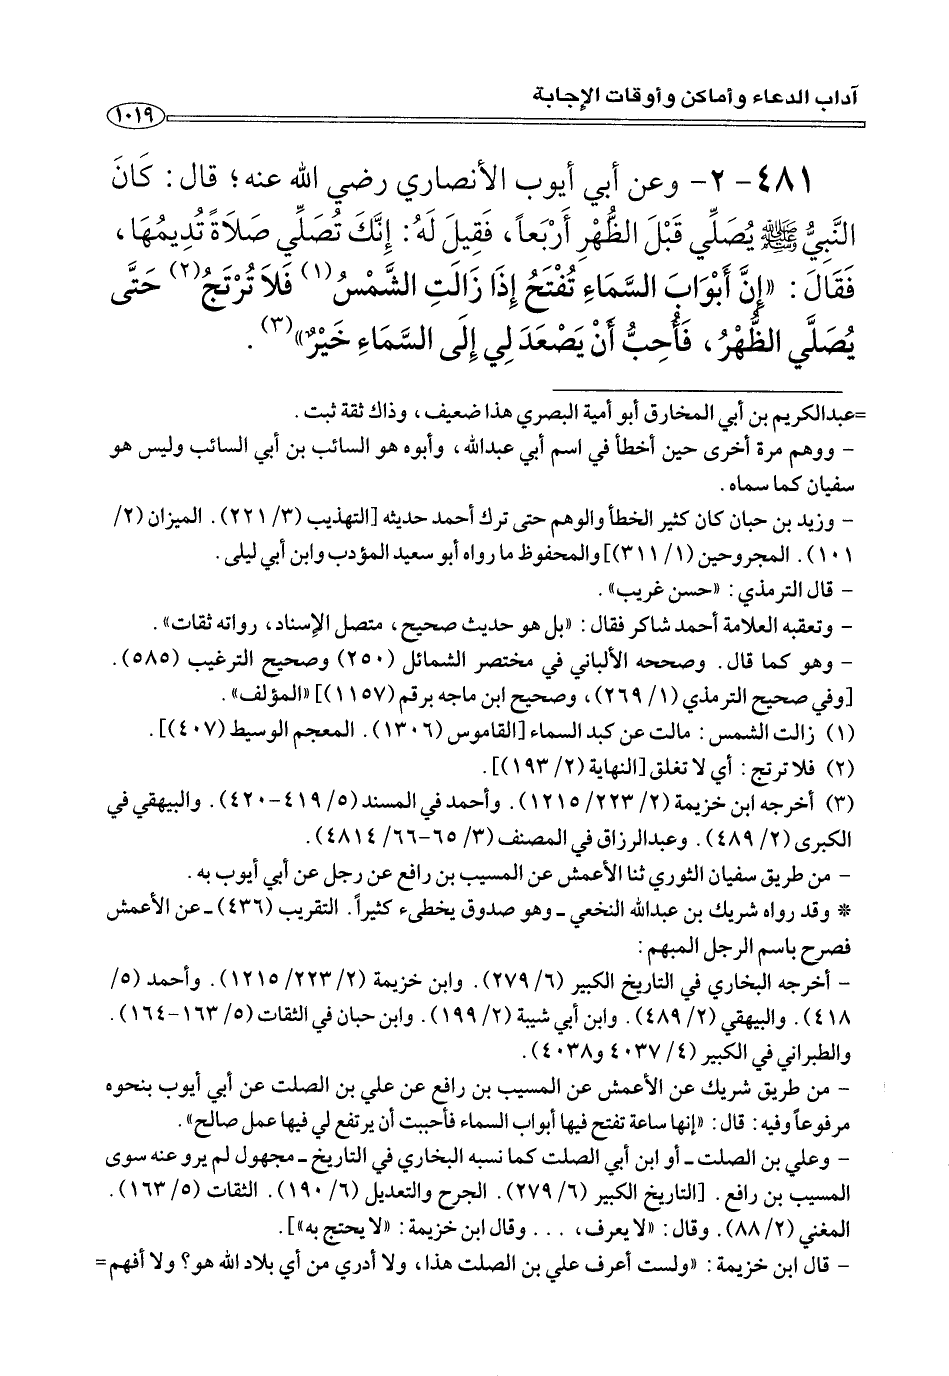 آداب الدعاء وأماكن وأوقات الإجابة
١٠١٩
٤٨١- ٢- وعن أبي أيوب الأنصاري رضي الله عنه؛ قال: كَانَ
النَّبِيُّ ﷺ يُصَلِّي قَبْلَ الظُّهْرِ أَرْبَعاً، فَقِيلَ لَهُ: إِنَّكَ تُصَلِّي صَلاَةً تُدِيمُهَا،
فَقَالَ: «إِنَّ أَبْوَابَ السَّمَاءِ تُفْتَحُ إِذَا زَالَتِ الشَّمْسُ(١) فَلاَ تُرْتَجُ(٢) حَتَّى
يُصَلَّي الظُّهْرُ، فَأُحِبُّ أَنْ يَصْعَدَ لِي إِلَى السَّمَاءِ خَيْرٌ»(٣).
=عبدالكريم بن أبي المخارق أبو أمية البصري هذا ضعيف، وذاك ثقة ثبت.
- ووهم مرة أخرى حين أخطأ في اسم أبي عبدالله، وأبوه هو السائب بن أبي السائب وليس هو
سفيان كما سماه.
- وزيد بن حبان كان كثير الخطأ والوهم حتى ترك أحمد حديثه [التهذيب (٣/ ٢٢١). الميزان (٢/
١٠١). المجروحين (١/ ٣١١)] والمحفوظ ما رواه أبو سعيد المؤدب وابن أبي ليلى.
- قال الترمذي: «حسن غريب».
- وتعقبه العلامة أحمد شاكر فقال: «بل هو حديث صحيح، متصل الإسناد، رواته ثقات».
- وهو كما قال. وصححه الألباني في مختصر الشمائل (٢٥٠) وصحيح الترغيب (٥٨٥).
[وفي صحيح الترمذي (١/ ٢٦٩)، وصحيح ابن ماجه برقم (١١٥٧)] «المؤلف».
(١) زالت الشمس: مالت عن كبد السماء [القاموس (١٣٠٦). المعجم الوسيط (٤٠٧)].
(٢) فلا ترتج: أي لا تغلق [النهاية (٢/ ١٩٣)].
(٣) أخرجه ابن خزيمة (٢/ ٢٢٣/ ١٢١٥). وأحمد في المسند (٥/ ٤١٩-٤٢٠). والبيهقي في
الكبرى (٢/ ٤٨٩). وعبدالرزاق في المصنف (٣/ ٦٥-٦٦/ ٤٨١٤).
- من طريق سفيان الثوري ثنا الأعمش عن المسيب بن رافع عن رجل عن أبي أيوب به.
* وقد رواه شريك بن عبدالله النخعي ـ وهو صدوق يخطىء كثيراً. التقريب (٤٣٦) ـ عن الأعمش
فصرح باسم الرجل المبهم:
- أخرجه البخاري في التاريخ الكبير (٦/ ٢٧٩). وابن خزيمة (٢/ ٢٢٣/ ١٢١٥). وأحمد (٥/
٤١٨). والبيهقي (٢/ ٤٨٩). وابن أبي شيبة (٢/ ١٩٩). وابن حبان في الثقات (٥/ ١٦٣-١٦٤).
والطبراني في الكبير (٤/ ٤٠٣٧ و٤٠٣٨).
- من طريق شريك عن الأعمش عن المسيب بن رافع عن علي بن الصلت عن أبي أيوب بنحوه
مرفوعاً وفيه: قال: «إنها ساعة تفتح فيها أبواب السماء فأحببت أن يرتفع لي فيها عمل صالح».
- وعلي بن الصلت ـ أو ابن أبي الصلت كما نسبه البخاري في التاريخ ـ مجهول لم يرو عنه سوى
المسيب بن رافع. [التاريخ الكبير (٦/ ٢٧٩). الجرح والتعديل (٦/ ١٩٠). الثقات (٥/ ١٦٣).
المغني (٢/ ٨٨). وقال: «لا يعرف، ... وقال ابن خزيمة: «لا يحتج به»].
- قال ابن خزيمة: «ولست أعرف علي بن الصلت هذا، ولا أدري من أي بلاد الله هو؟ ولا أفهم=